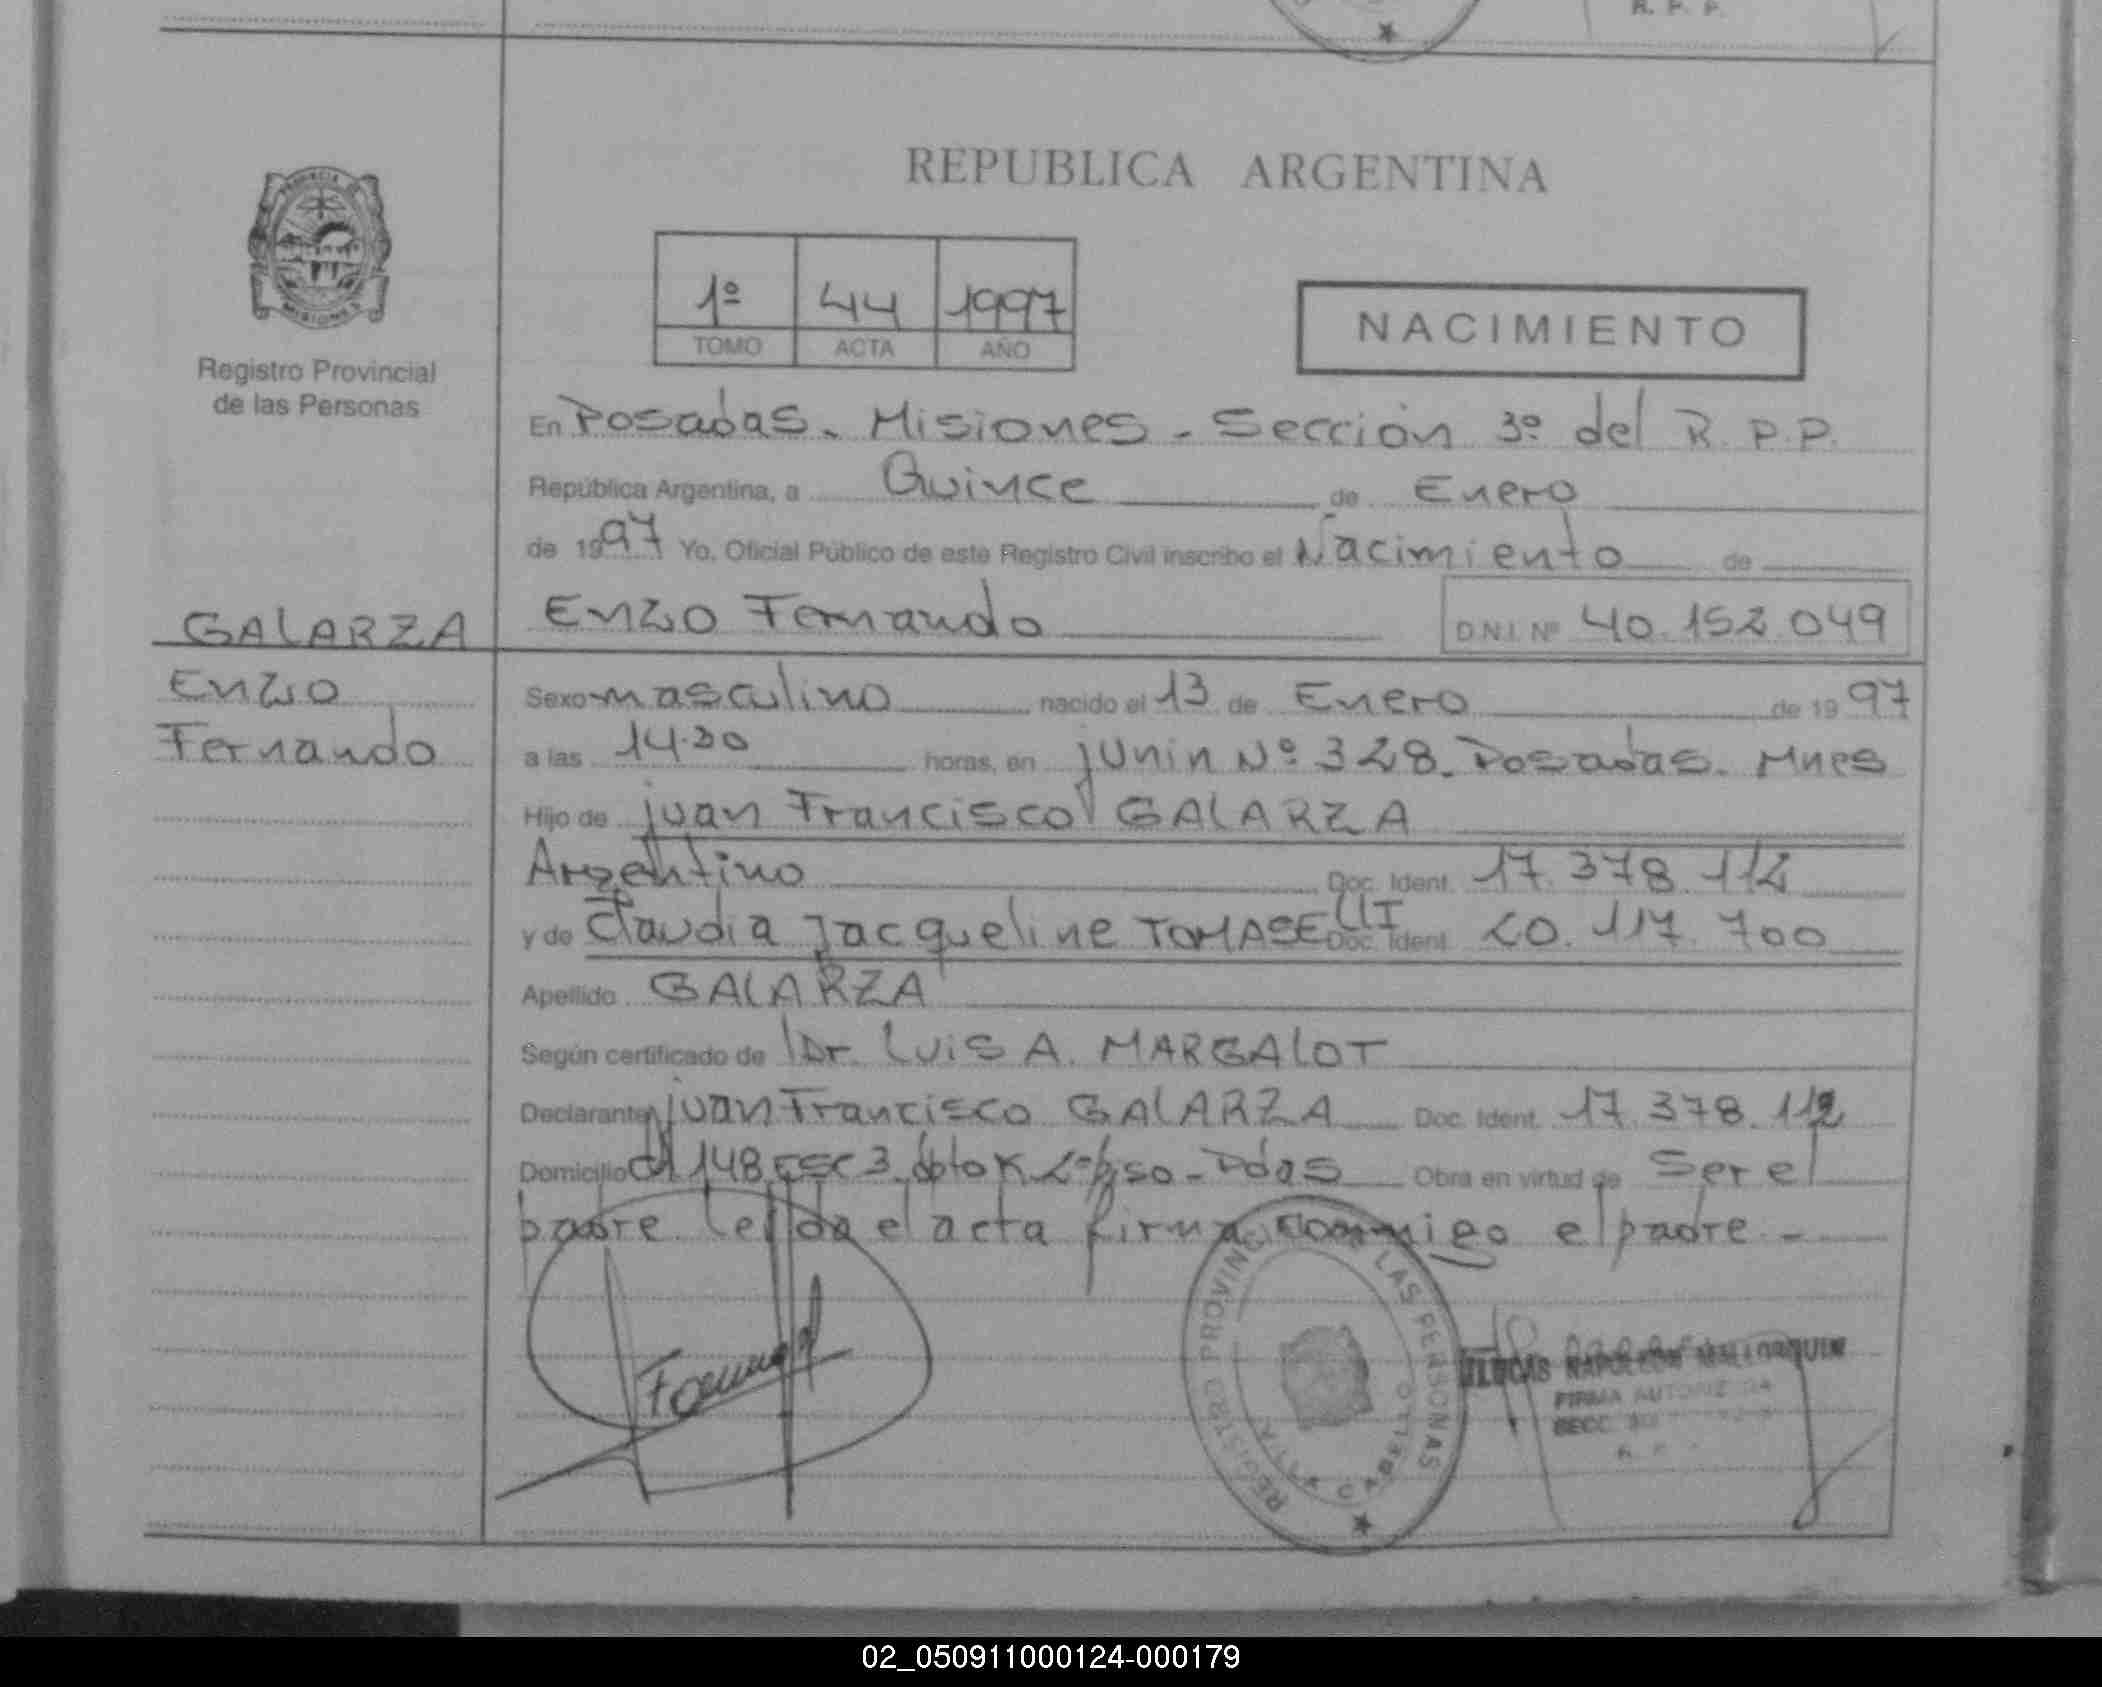 R. P. P.
REPUBLICA ARGENTINA
PROVINCIA DE
MISIONES
Registro Provincial
de las Personas
1º 44 1997
TOMO ACTA AÑO
NACIMIENTO
En Posadas. Misiones - Sección 3º del R. P. P.
República Argentina, a Quince de Enero
de 1997 Yo, Oficial Público de este Registro Civil inscribo el Nacimiento de
GALARZA Enzo Fernando D.N.I. Nº 40.152.049
Enzo
Fernando
Sexo masculino nacido el 13 de Enero de 1997
a las 14.30 horas, en junin Nº 328. Posadas. Mnes
Hijo de juan Francisco GALARZA
Argentino Doc. Ident. 17.378.112
y de Claudia Jacqueline TOMASELLI Doc. Ident. 20.117.700
Apellido GALARZA
Según certificado de Dr. Luis A. MARGALOT
Declarante juan Francisco GALARZA Doc. Ident. 17.378.112
Domicilio ch 148 esc 3 dpto K 2º piso - Pdas Obra en virtud de Ser el
padre leida el acta firma conmigo el padre -
REGISTRO PROVINCIAL DE LAS PERSONAS
VILLA CABELLO
LUCAS NAPOLEON MALLORQUIN
FIRMA AUTORIZADA
SECC.
02_050911000124-000179